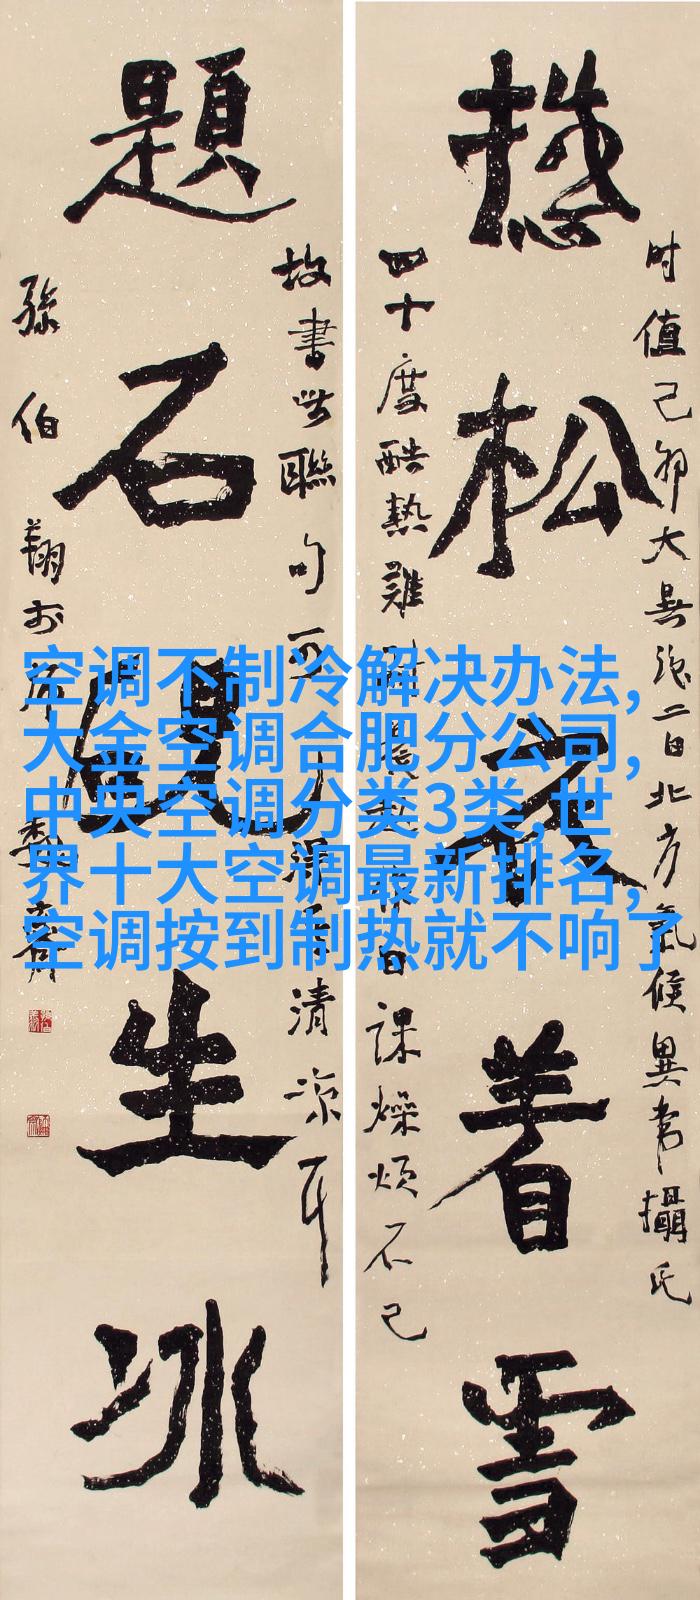 时值己卯大暑後二日北方氣候異常攝氏
松衣着雪
四十度酷熱難 日課燥煩不已
故書此聯句 清凉耳
題石硯生冰
孫伯翔於
空调不制冷解决办法,
大金空调合肥分公司,
中央空调分类3类,世
界十大空调最新排名,
空调按到制热就不响了